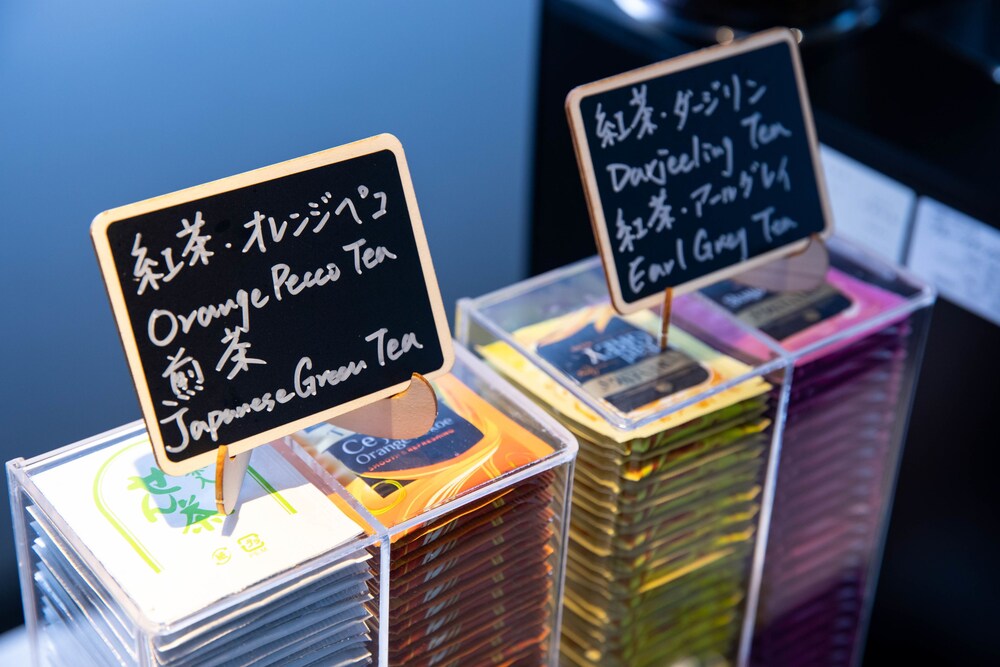 紅茶・オレンジペコ
Orange Pecco Tea
煎茶
Japanese Green Tea
紅茶・ダージリン
Darjeeling Tea
紅茶・アールグレイ
Earl Grey Tea
せん茶
Ce
Orange